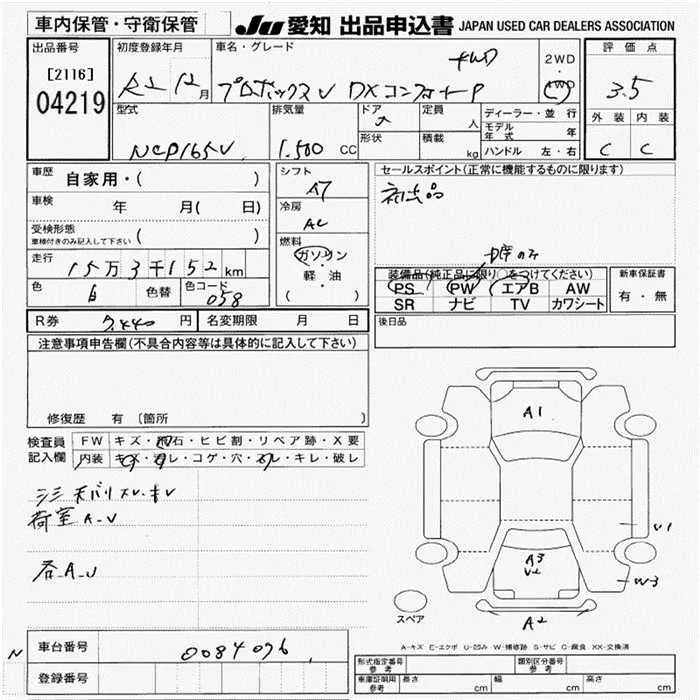 車内保管・守衛保管
JU 愛知 出品申込書 JAPAN USED CAR DEALERS ASSOCIATION
出品番号 初度登録年月 車名・グレード 評価点
[2116]
04219
12月 プロボックスV DXコンフォート 4WD
2WD
・
4WD
3.5
型式 排気量 ドア 定員 人 ディーラー・並行 外装 内装
モデル年式 年
NCP165V 1.500 CC 形状 積載 kg ハンドル 左・右 C C
車歴 自家用・( )
シフト A7
セールスポイント(正常に機能するものに限ります)
車検 年 月( 日)
冷房 AC
受検形態
車検付きのみ記入して下さい ( )
燃料
ガソリン
・
軽・油
( )
走行 15万3千152km
色 白 色替 色コード 058
装備品(純正品に限り○をつけてください) 新車保証書
PS PW エアB AW 有・無
SR ナビ TV カワシート
R券 7,440 円 名変期限 月 日
後日品
注意事項申告欄(不具合内容等は具体的に記入して下さい)
修復歴 有 〔箇所 〕
検査員 FW キズ・飛石・ヒビ割・リペア跡・X要
記入欄 内装 キズ・汚レ・コゲ・穴・スレ・キレ・破レ
荷室 A-U
A-U
A1
A3
U2
U1
W3
A2
スペア
A-キズ E-エクボ U-凹み W-補修跡 S-サビ C-腐食 XX-交換済
N 車台番号 0084096
登録番号
形式指定番号 参考 類別区分番号 参考
車庫証明用 参考 長さ cm 幅 cm 高さ cm